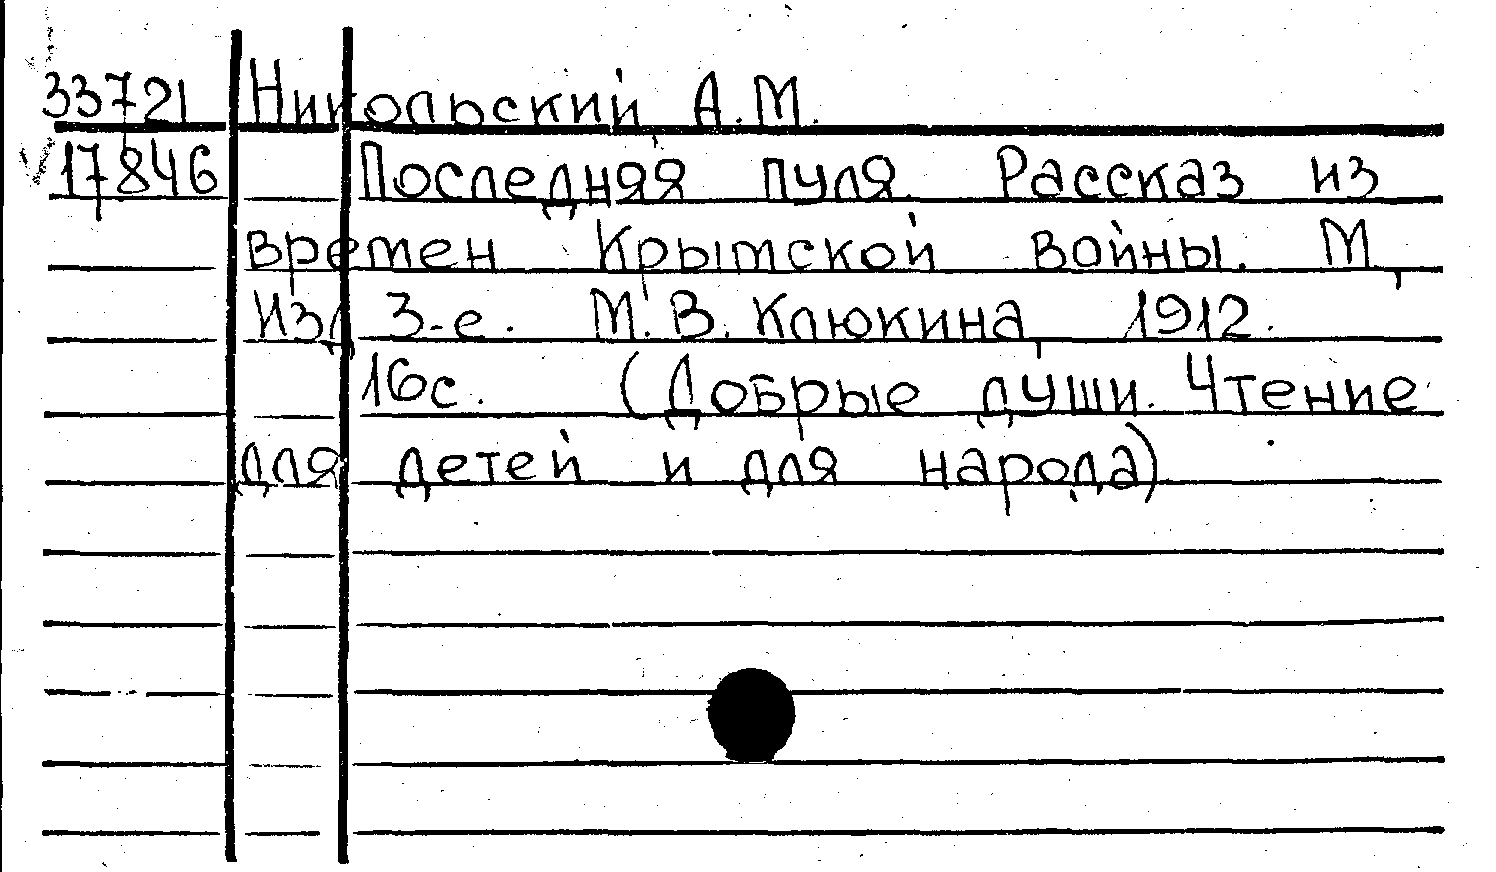 33721 Никольский А.М.
17846 Последняя пуля. Рассказ из
времен Крымской войны. М.,
Изд. 3-е. М.В. Клюкина, 1912.
16с. (Добрые души. Чтение
для детей и для народа)